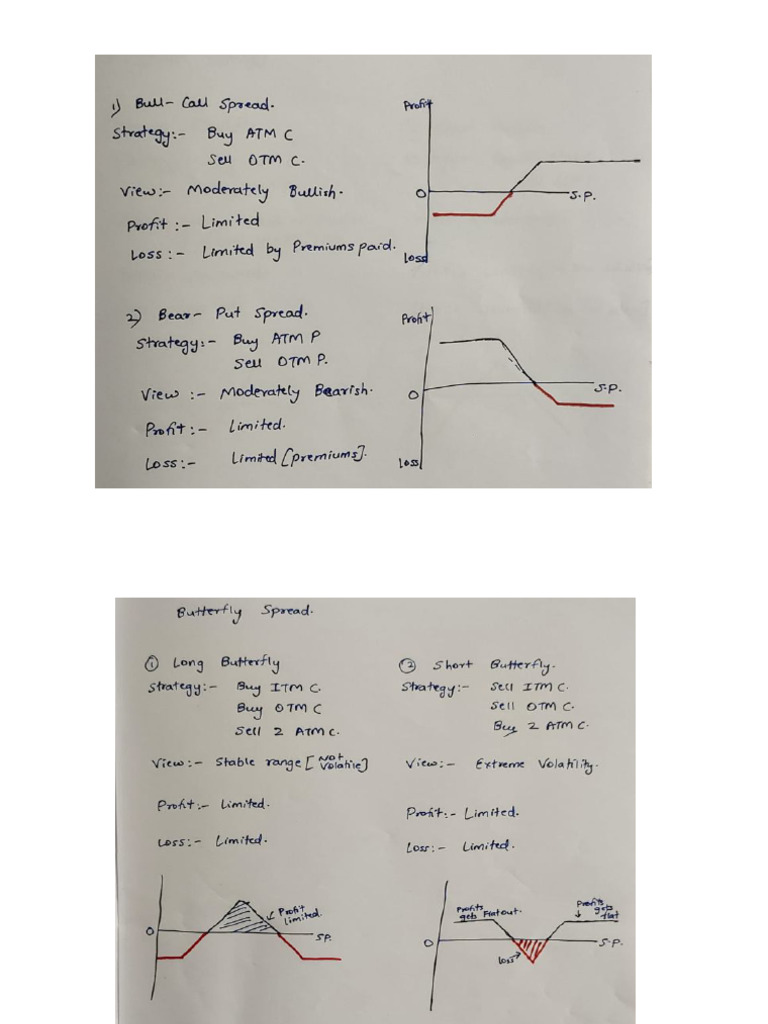 1) Bull- Call Spread.
Strategy:- Buy ATM C
Sell OTM C.
View:- Moderately Bullish.
Profit :- Limited
Loss :- Limited by Premiums paid.
Profit
0
S.P.
Loss
2) Bear- Put Spread.
Strategy:- Buy ATM P
Sell OTM P.
View :- Moderately Bearish.
Profit:- Limited.
Loss:- Limited [premiums].
Profit
0
S.P.
Loss
Butterfly Spread.
① Long Butterfly
Strategy:- Buy ITM C.
Buy OTM C
Sell 2 ATM C.
View:- Stable range [Not Volatile]
Profit:- Limited.
Loss:- Limited.
0
Profit
Limited.
SP.
② Short Butterfly.
Strategy:- Sell ITM C.
Sell OTM C.
Buy 2 ATM C.
View:- Extreme Volatility.
Profit:- Limited.
Loss:- Limited.
Profits
geb Flatout.
Profits
gets
flat
0
S.P.
Loss